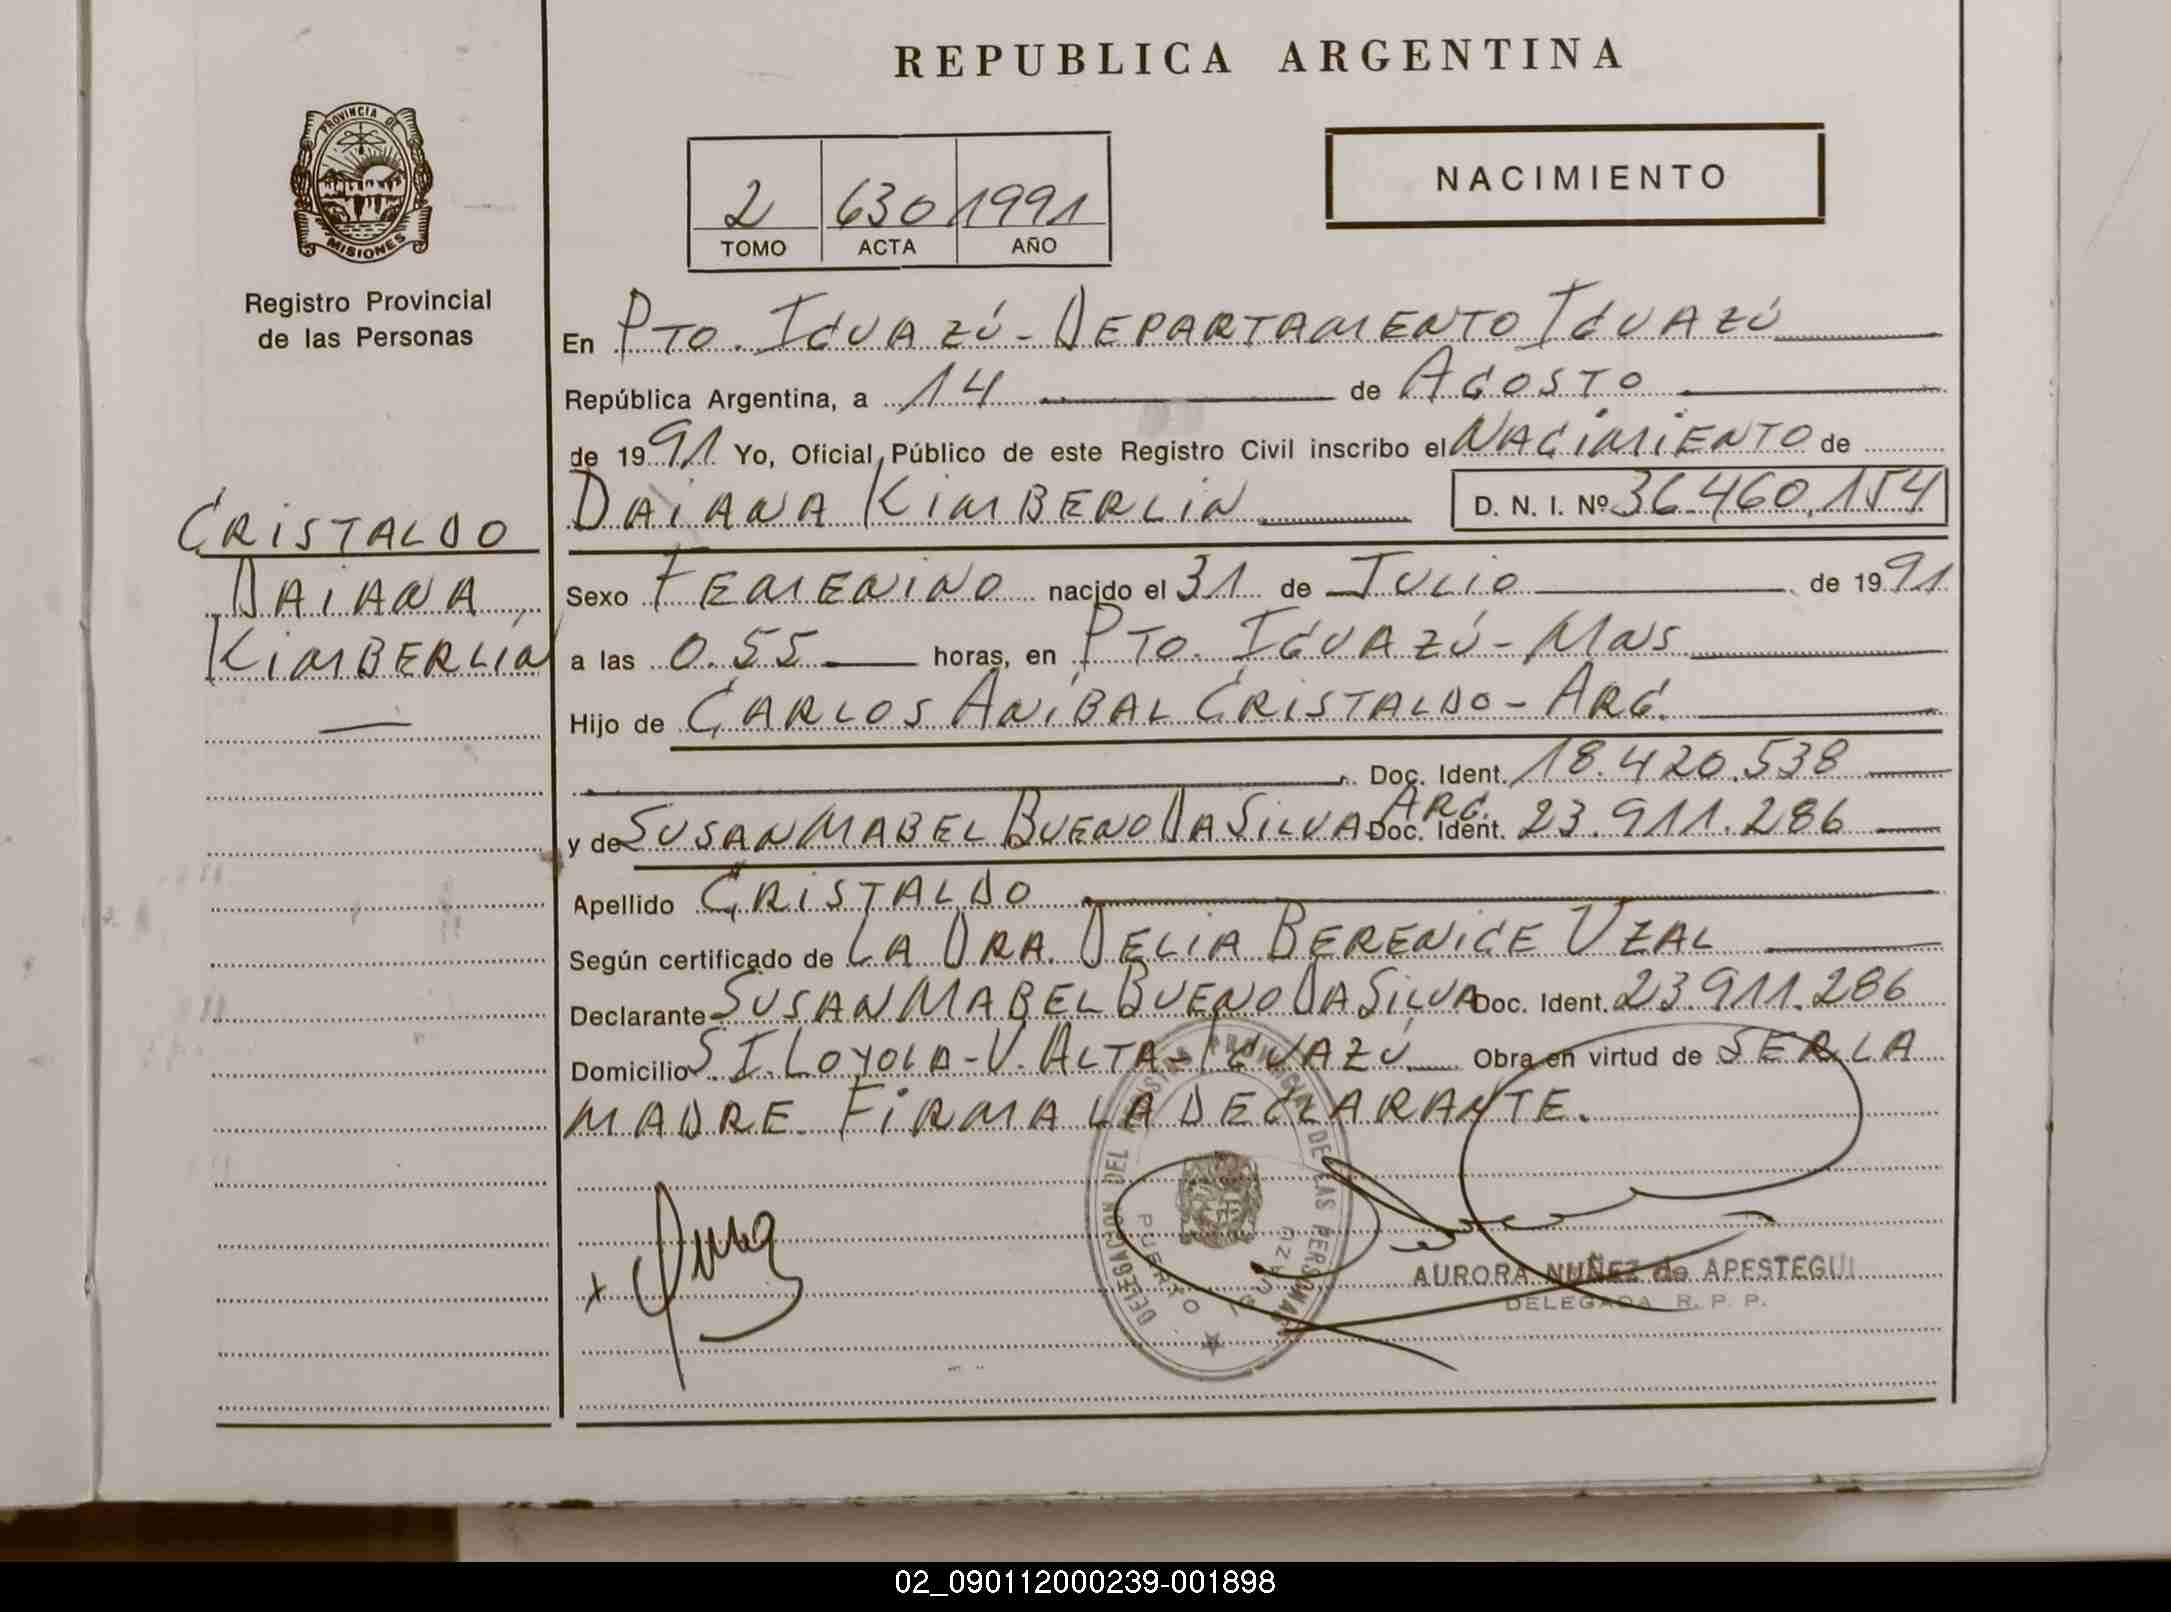 REPUBLICA ARGENTINA
PROVINCIA DE
MISIONES
Registro Provincial
de las Personas
2 630 1991
TOMO ACTA AÑO
NACIMIENTO
En PTO. IGUAZÚ - DEPARTAMENTO IGUAZÚ
República Argentina, a 14 de AGOSTO
de 1991 Yo, Oficial Público de este Registro Civil inscribo el NACIMIENTO de
DAIANA KIMBERLIN D. N. I. Nº 36.460.154
CRISTALDO
DAIANA
KIMBERLIN
Sexo FEMENINO nacido el 31 de JULIO de 1991
a las 0.55 horas, en PTO. IGUAZÚ - MNS
Hijo de CARLOS ANIBAL CRISTALDO - ARG.
Doc. Ident. 18.420.538
y de SUSAN MABEL BUENO DA SILVA ARG. Doc. Ident. 23.911.286
Apellido CRISTALDO
Según certificado de LA DRA. DELIA BERENICE UZAL
Declarante SUSAN MABEL BUENO DA SILVA Doc. Ident. 23.911.286
Domicilio S. I. LOYOLA - V. ALTA - IGUAZÚ Obra en virtud de SER LA
MADRE. FIRMA LA DECLARANTE.
DELEGACION DEL REGISTRO PROVINCIAL DE LAS PERSONAS
PUERTO IGUAZU
AURORA NUÑEZ de APESTEGUI
DELEGADA R. P. P.
02_090112000239-001898